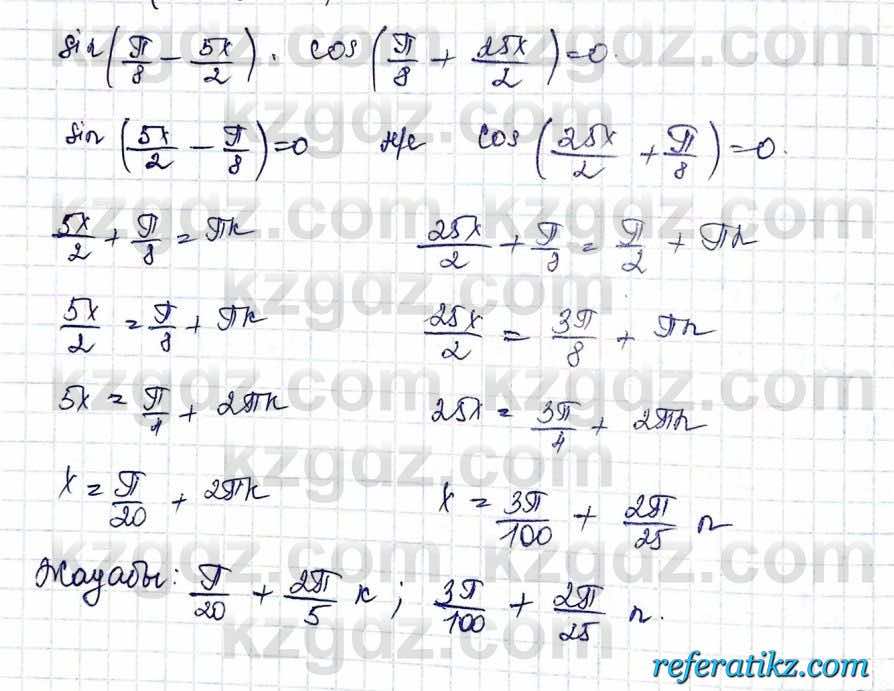 sin(π/8 − 5x/2) · cos(π/8 + 25x/2) = 0.
sin(5x/2 − π/8) = 0 н/е cos(25x/2 + π/8) = 0.
5x/2 + π/8 = πk 25x/2 + π/8 = π/2 + πn
5x/2 = π/8 + πk 25x/2 = 3π/8 + πn
5x = π/4 + 2πk 25x = 3π/4 + 2πn
x = π/20 + 2πk x = 3π/100 + 2π/25 n
Жауабы: π/20 + 2π/5 k; 3π/100 + 2π/25 n.
kzgdz.com
referatikz.com